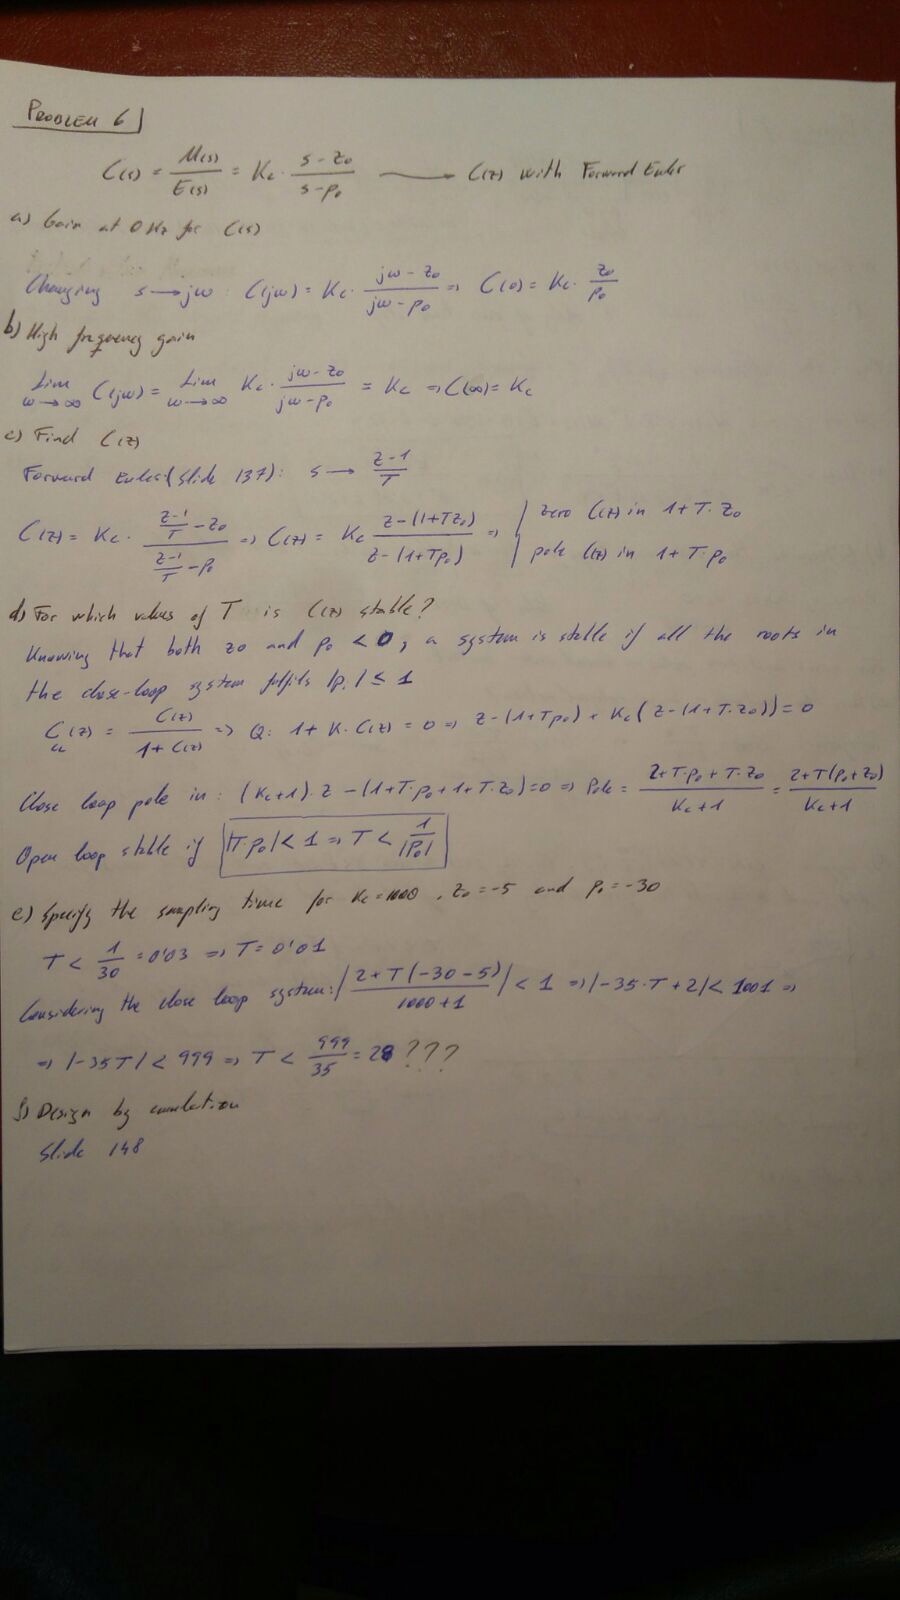 PROBLEM 6
C(s) = M(s)/E(s) = Kc · (s - z0)/(s - p0) → C(z) with Forward Euler
a) Gain at 0 Hz for C(s)
Changing s → jω : C(jω) = Kc · (jω - z0)/(jω - p0) ⇒ C(0) = Kc · z0/p0
b) High frequency gain
Lim ω→∞ C(jω) = Lim ω→∞ Kc · (jω - z0)/(jω - p0) = Kc ⇒ C(∞) = Kc
c) Find C(z)
Forward Euler (slide 137): s → (z-1)/T
C(z) = Kc · ((z-1)/T - z0)/((z-1)/T - p0) ⇒ C(z) = Kc (z - (1+Tz0))/(z - (1+Tp0)) ⇒ { zero C(z) in 1+T·z0
pole C(z) in 1+T·p0
d) For which values of T is C(z) stable?
Knowing that both z0 and p0 < 0, a system is stable if all the roots in
the close-loop system fulfils |pi| ≤ 1
Ccl(z) = C(z)/(1+C(z)) ⇒ Q: 1 + K·C(z) = 0 ⇒ z - (1+Tp0) + Kc(z - (1+T·z0)) = 0
Close loop pole in: (Kc+1)·z - (1+T·p0+1+T·z0) = 0 ⇒ Pole = (2+T·p0+T·z0)/(Kc+1) = (2+T(p0+z0))/(Kc+1)
Open loop stable if |T·p0| < 1 ⇒ T < 1/|p0|
e) Specify the sampling time for Kc=1000, z0=-5 and p0=-30
T < 1/30 = 0'03 ⇒ T = 0'01
Considering the close loop system: |(2+T(-30-5))/(1000+1)| < 1 ⇒ |-35·T+2| < 1001 ⇒
⇒ |-35T| < 999 ⇒ T < 999/35 = 28 ???
f) Design by emulation
Slide 148